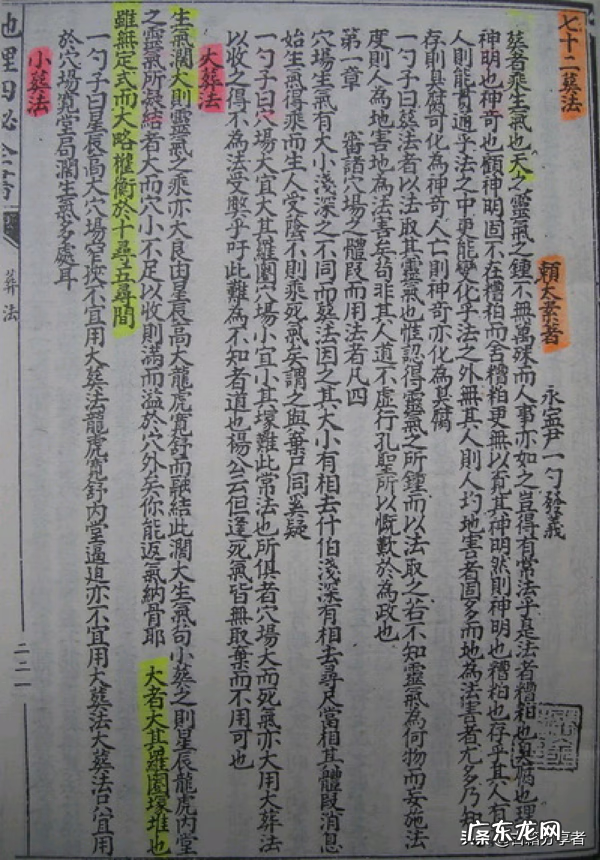 七十二葬法
賴太素著　永寧尹一勺發義
葬者乘生氣也天之靈氣之鍾不無萬殊而人事亦如之豈得有常法乎是法者糟粕也臭腐也
神明也神奇也顧神明固不在糟粕而舍糟粕更無以見其神明然則神明也糟粕也存乎其人有
人則能貫通乎法之中更能變化乎法之外無其人則人圴地害者固多而地為法害者尤多乃
存則臭腐可化為神奇人亡則神奇亦化為臭腐
一勺子曰葬法者以法取其靈氣也惟認得靈氣之所鍾而以法取之若不知靈氣為何物而妄施法
度則人為地害地為法害矣苟非其人道不虛行孔聖所以慨歎於為政也
第一章　審諸穴場之體段而用法者凡四
穴場生氣有大小淺深之不同而葬法因之其大小有相去什伯淺深有相去尋尺當相其體段消息
始生氣得乘而生人受蔭不則乘死氣矣謂之與棄尸同奚疑
一勺子曰穴場大宜大其羅圍穴場小宜小其塚難此常法也所俱者穴場大而死氣亦大用大葬法
以收之得不為法受弊乎吁此難為不知者道也楊公云但逢死氣皆無取棄而不用可也
大葬法
生氣濶大則靈氣之乘亦大良由星辰高大龍虎寬舒而融結此濶大生氣句小葬之則星辰龍虎內堂
之靈氣所凝結者大而穴小不足以收則滿而溢於穴外矣你能返氣納骨耶　大者大其羅圍塚堆也
雖無定式而大略權衡於十尋五尋間
一勺子曰星辰高大穴場窄狹不宜用大葬法龍虎寬舒內堂逼迫亦不宜用大葬法大葬法只宜用
於穴場寬堂局濶生氣多處耳
小葬法
葬法
二二一
广东龙网